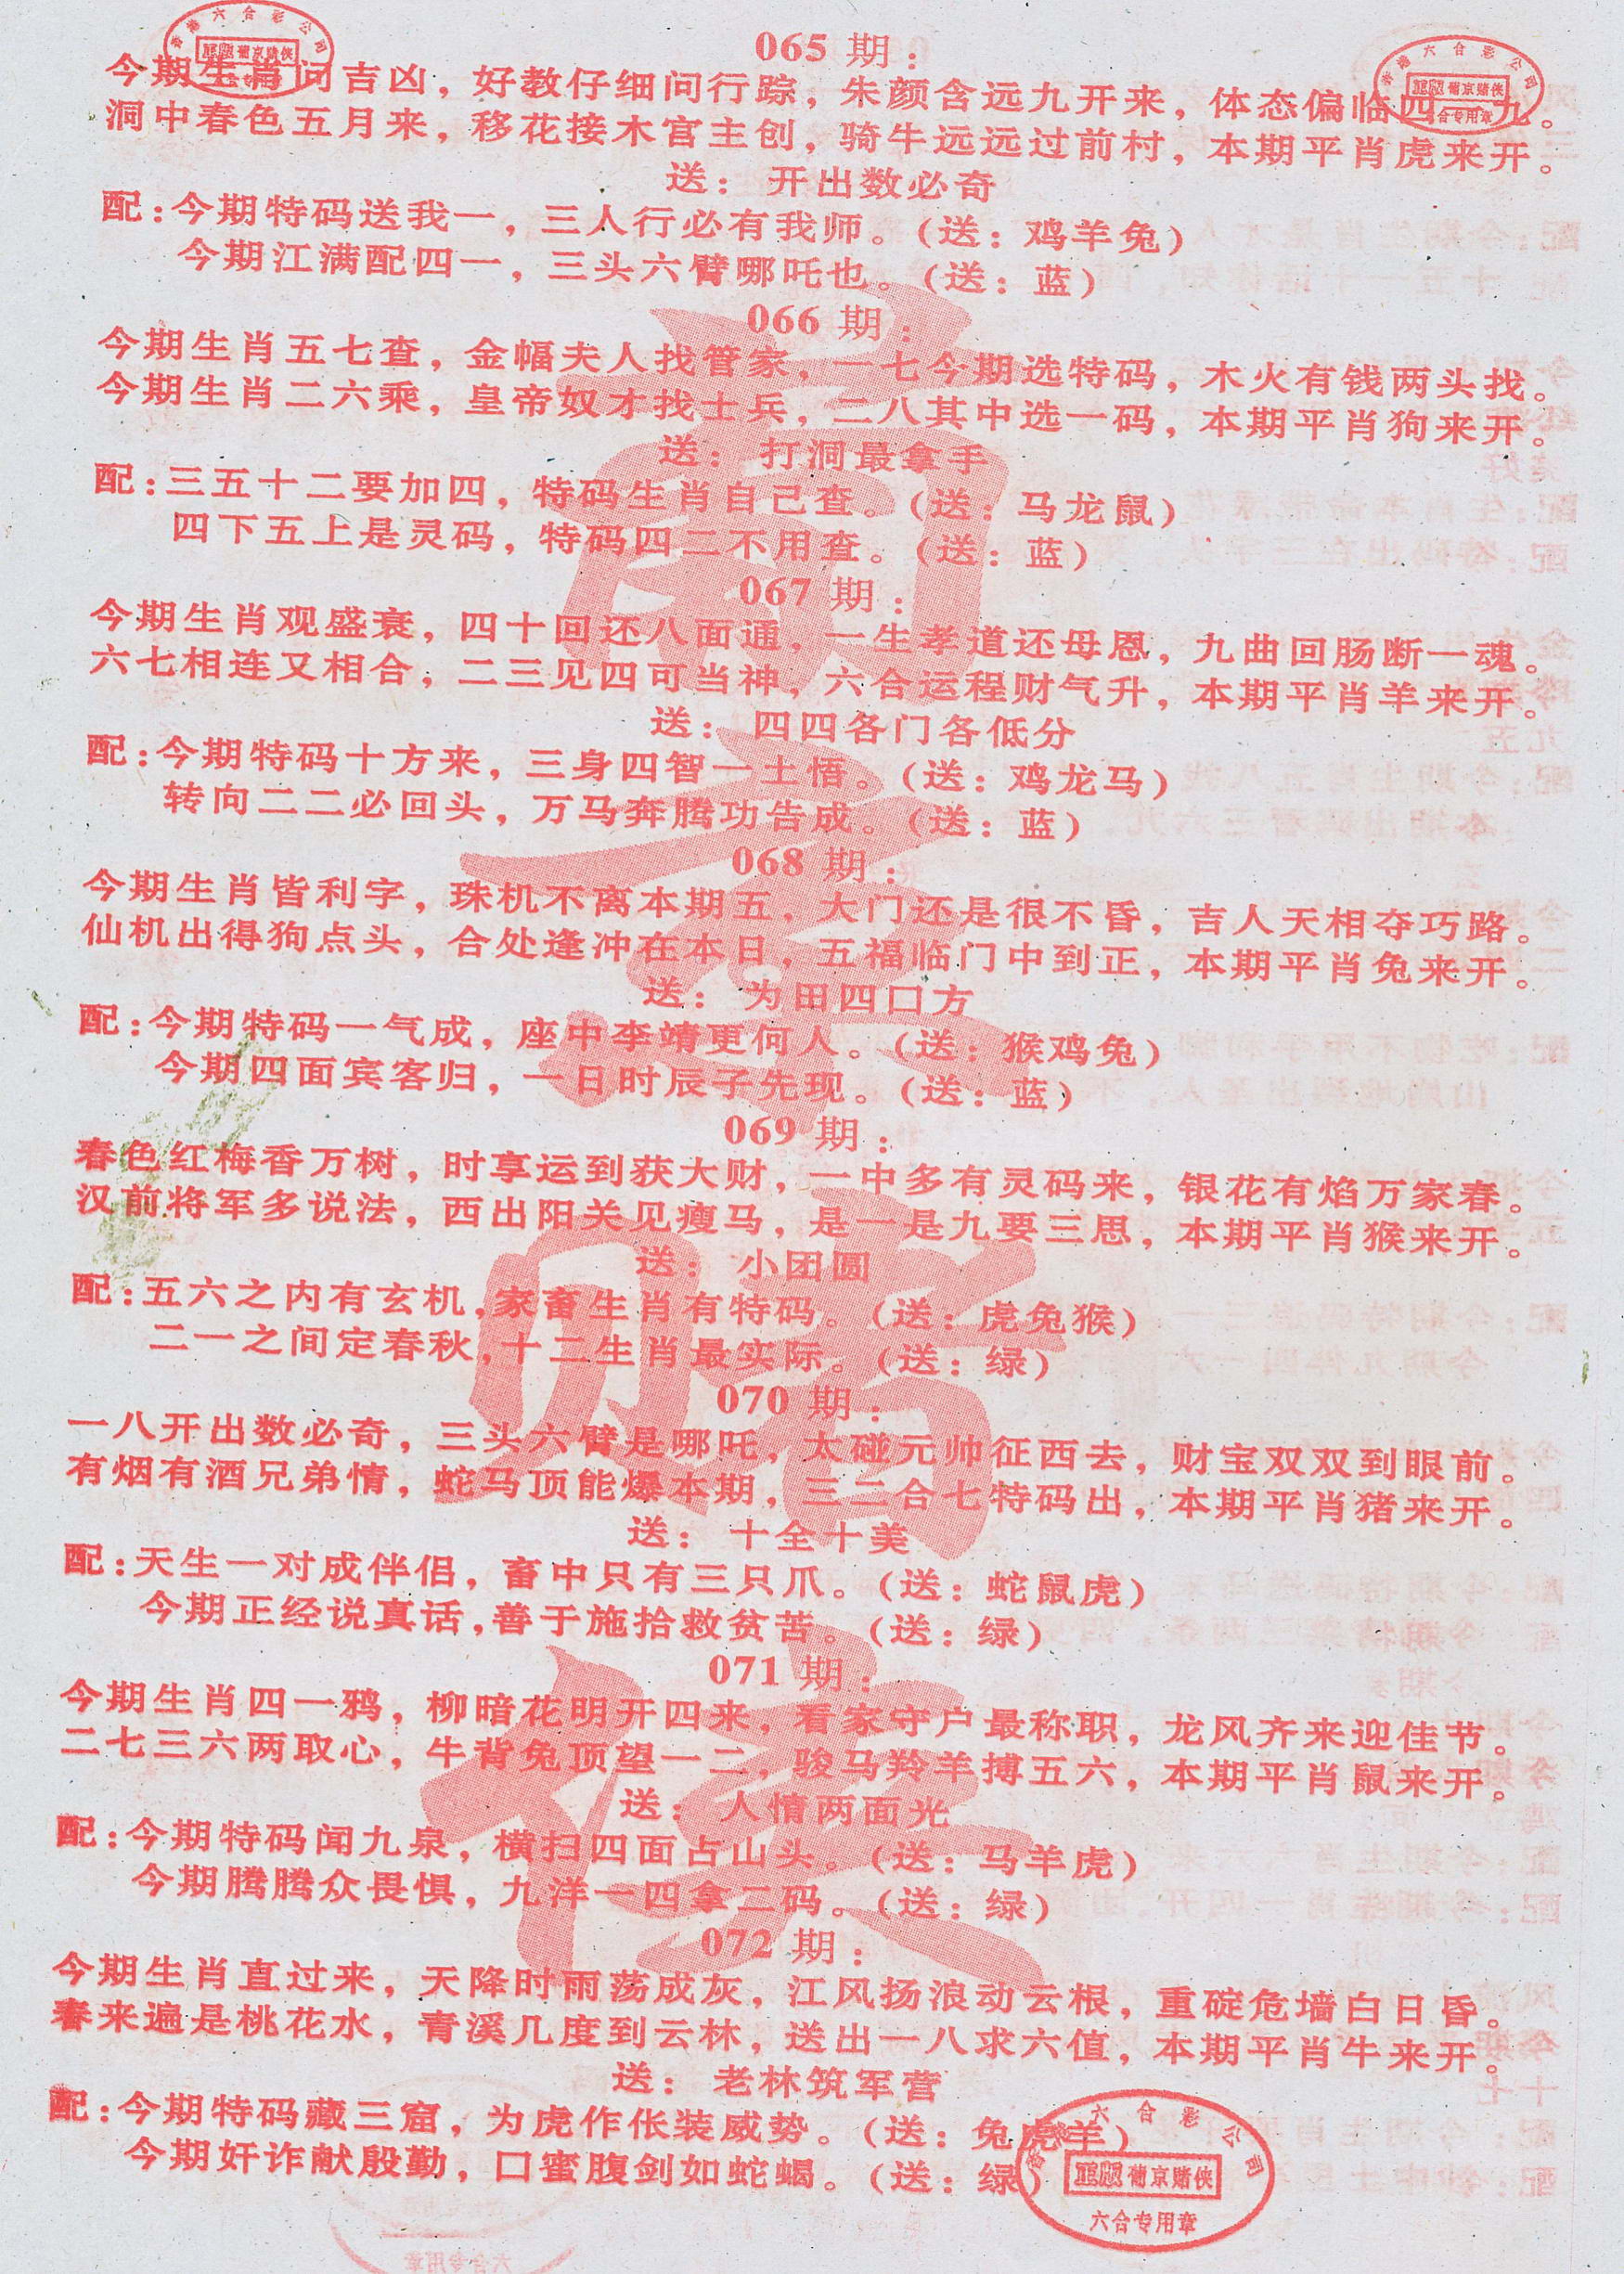 065 期：
今期生肖问吉凶，好教仔细问行踪，朱颜含远九开来，体态偏临四一九。
洞中春色五月来，移花接木宫主创，骑牛远远过前村，本期平肖虎来开。
送：开出数必奇
配：今期特码送我一，三人行必有我师。（送：鸡羊兔）
今期江满配四一，三头六臂哪吒也。（送：蓝）
066 期：
今期生肖五七查，金幅夫人找管家，一七今期选特码，木火有钱两头找。
今期生肖二六乘，皇帝奴才找士兵，二八其中选一码，本期平肖狗来开。
送：打洞最拿手
配：三五十二要加四，特码生肖自己查。（送：马龙鼠）
四下五上是灵码，特码四二不用查。（送：蓝）
067 期：
今期生肖观盛衰，四十回还八面通，一生孝道还母恩，九曲回肠断一魂。
六七相连又相合，二三见四可当神，六合运程财气升，本期平肖羊来开。
送：四四各门各低分
配：今期特码十方来，三身四智一土悟。（送：鸡龙马）
转向二二必回头，万马奔腾功告成。（送：蓝）
068 期：
今期生肖皆利字，珠机不离本期五，大门还是很不昏，吉人天相夺巧路。
仙机出得狗点头，合处逢冲在本日，五福临门中到正，本期平肖兔来开。
送：为田四口方
配：今期特码一气成，座中李靖更何人。（送：猴鸡兔）
今期四面宾客归，一日时辰子先现。（送：蓝）
069 期：
春色红梅香万树，时享运到获大财，一中多有灵码来，银花有焰万家春。
汉前将军多说法，西出阳关见瘦马，是一是九要三思，本期平肖猴来开。
送：小团圆
配：五六之内有玄机，家畜生肖有特码。（送：虎兔猴）
二一之间定春秋，十二生肖最实际。（送：绿）
070 期：
一八开出数必奇，三头六臂是哪吒，太碰元帅征西去，财宝双双到眼前。
有烟有酒兄弟情，蛇马顶能爆本期，三二合七特码出，本期平肖猪来开。
送：十全十美
配：天生一对成伴侣，畜中只有三只爪。（送：蛇鼠虎）
今期正经说真话，善于施拾救贫苦。（送：绿）
071 期：
今期生肖四一鸦，柳暗花明开四来，看家守户最称职，龙风齐来迎佳节。
二七三六两取心，牛背兔顶望一二，骏马羚羊搏五六，本期平肖鼠来开。
送：人情两面光
配：今期特码闻九泉，横扫四面占山头。（送：马羊虎）
今期腾腾众畏惧，九洋一四拿二码。（送：绿）
072 期：
今期生肖直过来，天降时雨荡成灰，江风扬浪动云根，重碇危墙白日昏。
春来遍是桃花水，青溪几度到云林，送出一八求六值，本期平肖牛来开。
送：老林筑军营
配：今期特码藏三窟，为虎作伥装威势。（送：兔虎羊）
今期奸诈献殷勤，口蜜腹剑如蛇蝎。（送：绿）
香港六合彩公司
正版 葡京赌侠
六合专用章